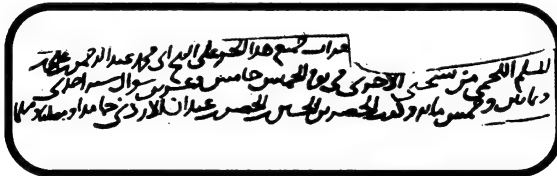 قرأت جميع هذا الجزء على الشيخ أبي محمد عبد الرحمن بن علي بن
المسلم اللخمي من نسختي الأخرى في يوم الخميس خامس وعشرين شوال سنة احدى
وثمانين وخمس مائة وكتب الخضر بن الحسين بن الخضر بن عبدان الازدي حامدا ومصليا ومسلما